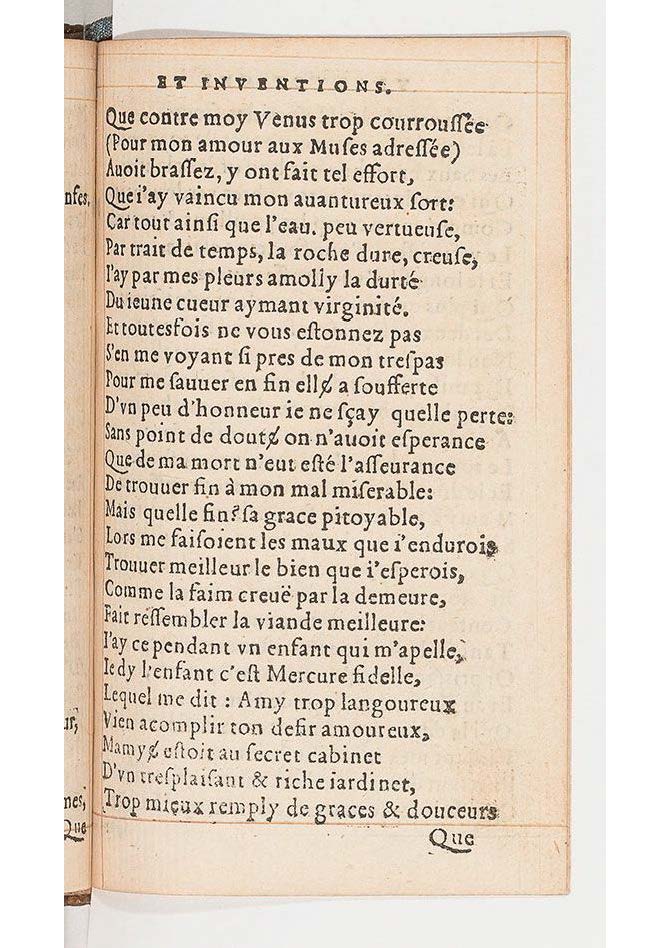 ET INVENTIONS.
Que contre moy Venus trop courrouſſée
(Pour mon amour aux Muſes adreſſée)
Auoit braſſez, y ont fait tel effort,
Que i'ay vaincu mon auantureux ſort:
Car tout ainſi que l'eau. peu vertueuſe,
Par trait de temps, la roche dure, creuſe,
I'ay par mes pleurs amolly la durté
Du ieune cueur aymant virginité.
Et toutesfois ne vous eſtonnez pas
S'en me voyant ſi pres de mon treſpas
Pour me ſauuer en fin ellɇ a ſoufferte
D'vn peu d'honneur ie ne ſçay quelle perte:
Sans point de doutɇ on n'auoit eſperance
Que de ma mort n'eut eſté l'aſſeurance
De trouuer fin à mon mal miſerable:
Mais quelle fin? ſa grace pitoyable,
Lors me faiſoient les maux que i'endurois
Trouuer meilleur le bien que i'eſperois,
Comme la faim creuë par la demeure,
Fait reſſembler la viande meilleure:
I'ay ce pendant vn enfant qui m'apelle,
Ie dy l'enfant c'eſt Mercure fidelle,
Lequel me dit : Amy trop langoureux
Vien acomplir ton deſir amoureux,
Mamyɇ eſtoit au ſecret cabinet
D'vn treſplaiſant & riche iardinet,
Trop mieux remply de graces & douceurs
Que
nſes,
ur,
mes,
Que